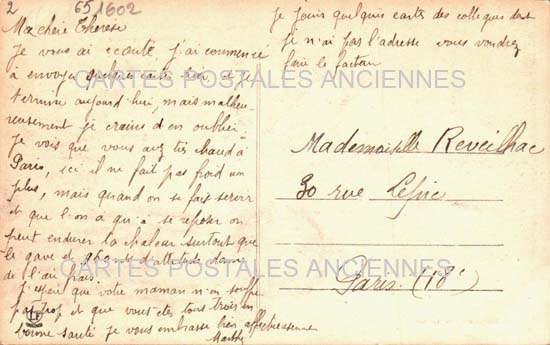 2
651602
Ma chère Thérèse
Je vous ai écouté j'ai commencé
à envoyer quelques cartes hier et je
termine aujourd'hui, mais malheu-
reusement je crains d'en oublier
Je vois que vous avez très chaud à
Paris, ici il ne fait pas froid non
plus, mais quand on se fait servir
et que l'on a qu'à se reposer on
peut endurer la chaleur surtout que
le gave et d'altitude donne
de l'air frais.
J'espère que votre maman n'en souffre
pas trop et que vous êtes tous trois en
bonne santé je vous embrasse bien affectueusement
je joins quelques cartes des collègues dont
je n'ai pas l'adresse vous voudrez
faire le facteur
CARTES POSTALES ANCIENNES
Mademoiselle Reveilhac
30 rue
Paris (18e
CARTES POSTALES ANCIENNES